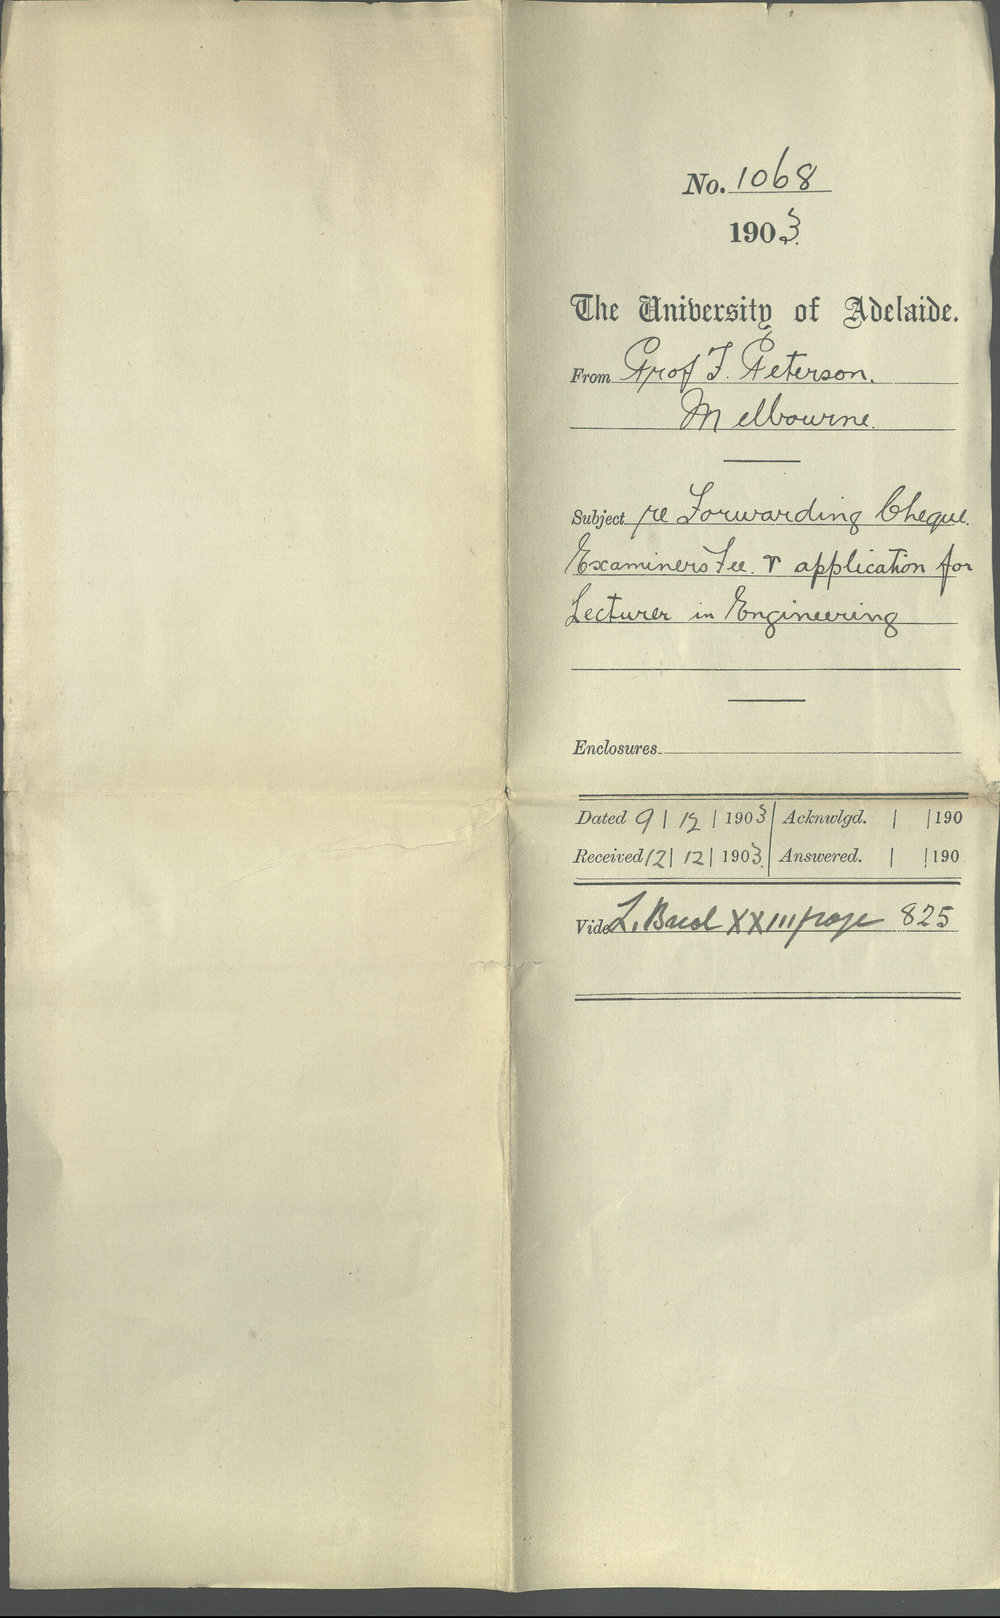 No. 1068
1903.
The University of Adelaide.
From Prof F. Peterson.
Melbourne.
Subject re Forwarding Cheque.
Examiners Fee. & application for
Lecturer in Engineering
Enclosures
Dated 9 | 12 | 1903 | Acknwlgd. | | 190
Received 12 | 12 | 1903. | Answered. | | 190
Vide L. XXIII page 825